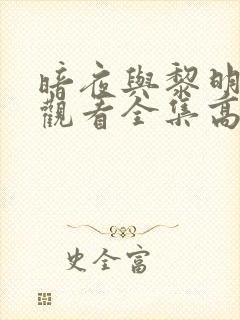 暗夜與黎明
觀看全集高
史全富